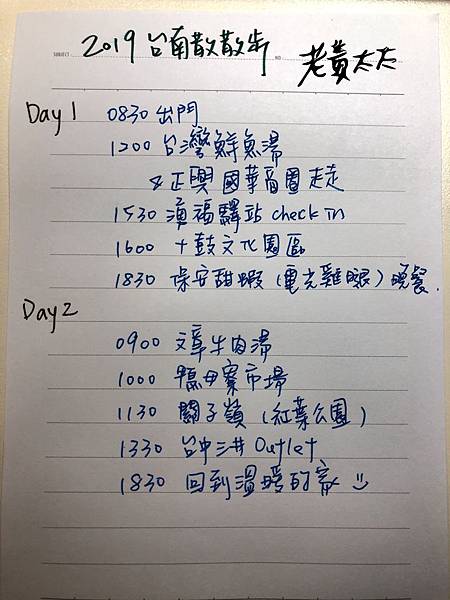 SUBJECT
2019 台南散散步 NO 老黃太太
Day 1 0830 出門
1200 台灣鮮魚湯
& 正興國華商圈走走
1530 漁福驛站 check in
1600 十鼓文化園區
1830 保安甜蝦(電光雞腿)晚餐.
Day 2
0900 文章牛肉湯
1000 鴨母寮市場
1130 關子嶺(紅葉公園)
1330 台中三井 Outlet
1830 回到溫暖的家